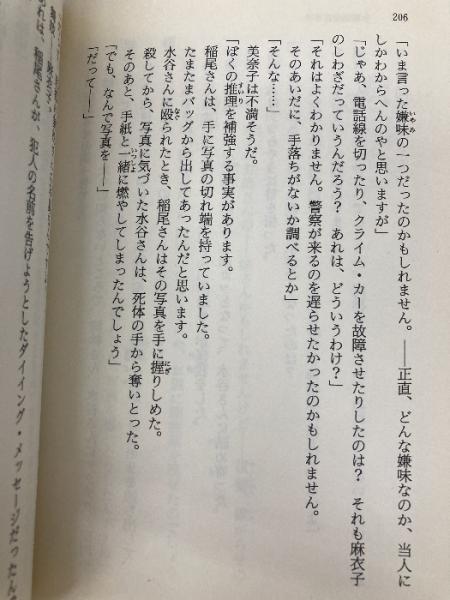 206
「いま言った嫌味の一つだったのかもしれません。――正直、どんな嫌味なのか、当人に
しかわからへんのやと思いますが」
「じゃあ、電話線を切ったり、クライム・カーを故障させたりしたのは？　それも麻衣子
のしわざだっていうんだろう？　あれは、どういうわけ？」
「それはよくわかりません。警察が来るのを遅らせたかったのかもしれません。
そのあいだに、手落ちがないか調べるとか」
「そんな……」
美奈子は不満そうだ。
「ぼくの推理を補強する事実があります。
稲尾さんは、手に写真の切れ端を持っていました。
たまたまバッグから出してあったんだと思います。
水谷さんに殴られたとき、稲尾さんはその写真を手に握りしめた。
殺してから、写真に気づいた水谷さんは、死体の手から奪いとった。
そのあと、手紙と一緒に燃やしてしまったんでしょう」
「でも、なんで写真を――」
「だって――」
れは、稲尾さんが、犯人の名前を告げようとしたダイイング・メッセージだったん